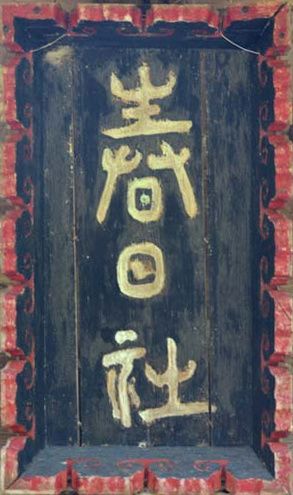 春日社